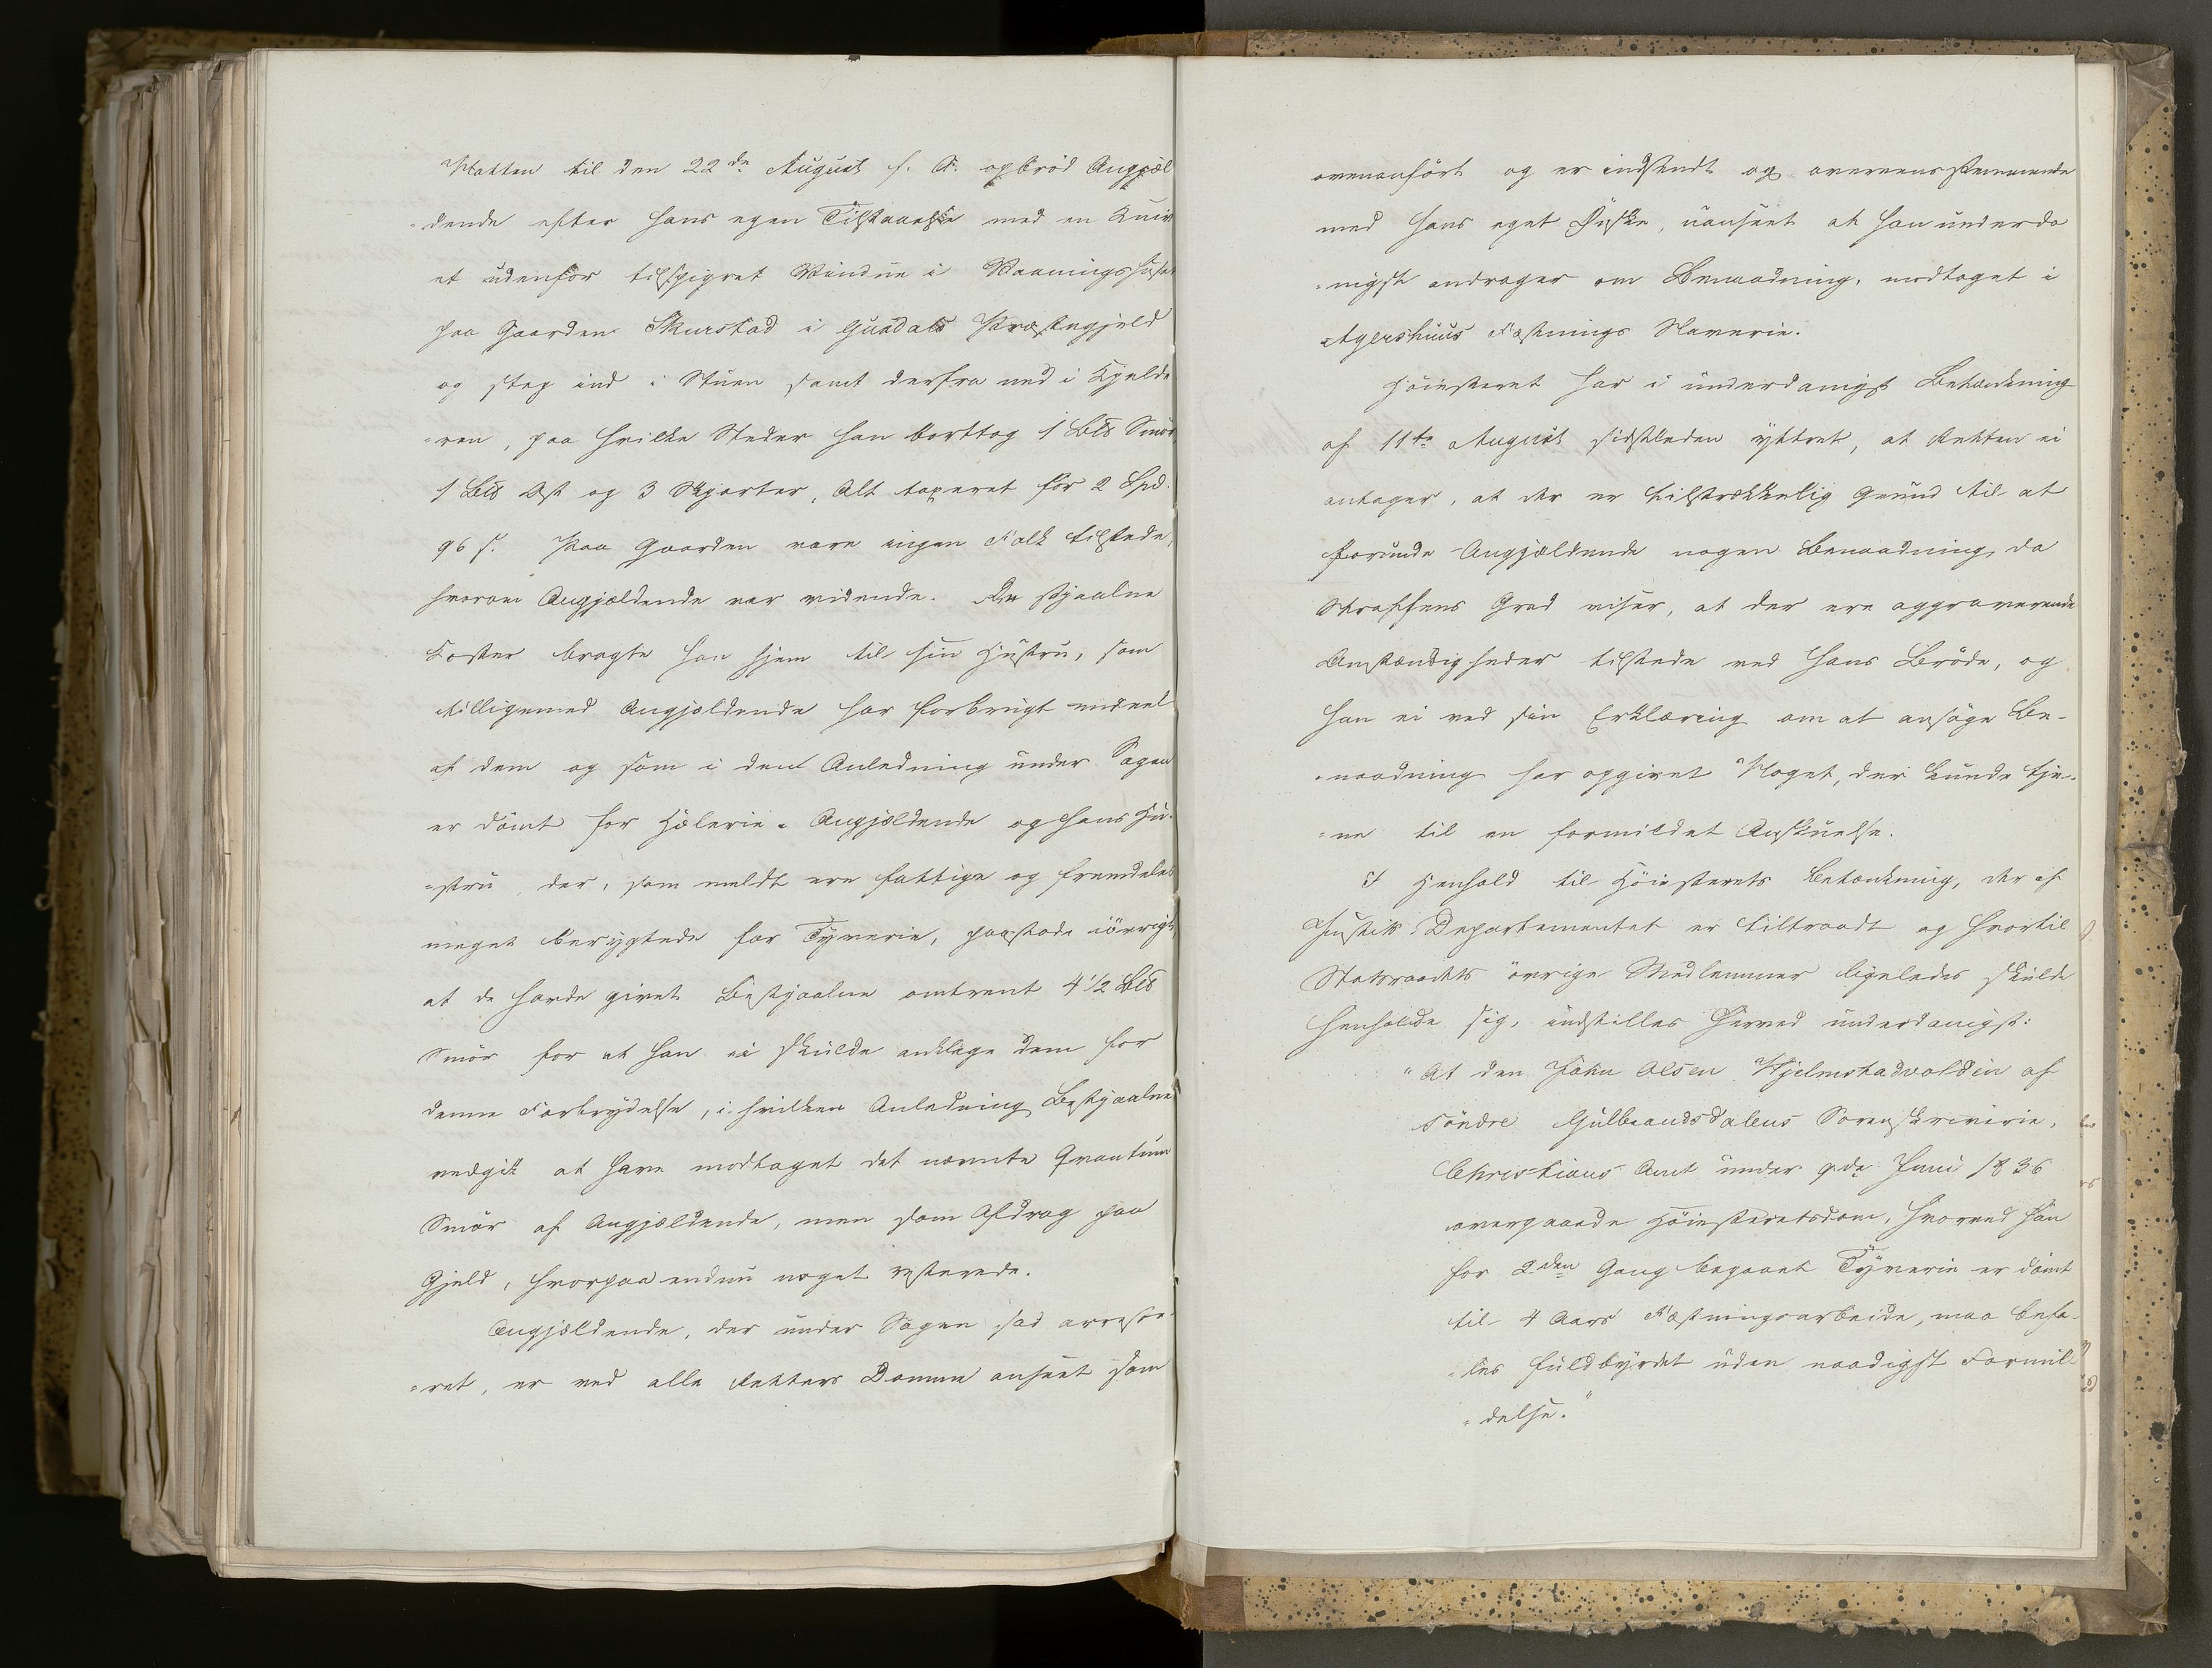 Natten til den 22de August f. A. opbrød Angjæl
-dende efter hans egen Tilstaaelse med en Kniv
et udenfor tilspigret Vindue i Vaaningshuset
paa Gaarden Skurstad i Gusdals Præstegjeld
og steg ind i Stuen samt derfra ned i Kjelde
-ren, paa hvilke Steder han borttog 1 B℔ Smør
1 B℔ Ost og 3 Skjorter, Alt taxeret for 2 Spd.
96 s. Paa Gaarden vare ingen Folk tilstede,
hvorom Angjældende var vidende. De stjaalne
Koster bragte han hjem til sin Hustru, som
tilligemed Angjældende har forbrugt endeel
af dem og som i den Anledning under Sagen
er dömt for Hæleri. Angjældende og hans Hu-
-stru, der, som meldt ere fattige og fremdeles
meget berygtede for Tyverie, paastode iövrigt,
at de havde givet Bestjaalne omtrent 4 1/2 B℔
Smör for at han ei skulde anklage dem for
denne Forbrydelse, i hvilken Anledning Bestjaalne
vedgik at have modtaget det nævnte Qvantum
Smör af Angjældende, men som Afdrag paa
Gjeld, hvorpaa endnu noget resterede.
Angjældende, der under Sagen sad arreste-
-ret, er ved alle Retters Domme anseet som
ovenanfört og er indsendt og overeensstemmende
med hans eget Önske, uanseet at han underda
-nigst andrager om Benaadning, modtaget i
Agershuus Fæstnings Slaverie.
Höiesteret har i underdanigst Betænkning
af 11te August sidstleden yttret, at Retten ei
antager, at der er tilstrækkelig Grund til at
forunde Angjældende nogen Benaadning, da
Straffens Grad viser, at der ere aggraverende
Omstændigheder tilstede ved hans Bröde, og
han ei ved sin Erklæring om at ansöge Be-
-naadning har opgivet Noget, der kunde tje-
-ne til en formildet Anskuelse.
I Henhold til Höiesterets Betænkning, der af
Justits Departementet er tiltraadt og hvortil
Statsraadets övrige Medlemmer ligeledes skulde
henholde sig, indstilles herved underdanigst:
"At den John Olsen Hjelmstadvolden af
söndre Gulbrandsdalens Sorenskriverie,
Christians Amt under 9de Juni 1836
overgaaede Höiesteretsdom, hvorved han
for 2den Gang begaaet Tyverie er dömt
til 4 Aars Fæstningsarbeide, maa befa-
-les fuldbyrdet uden naadigst Formil-
-delse."